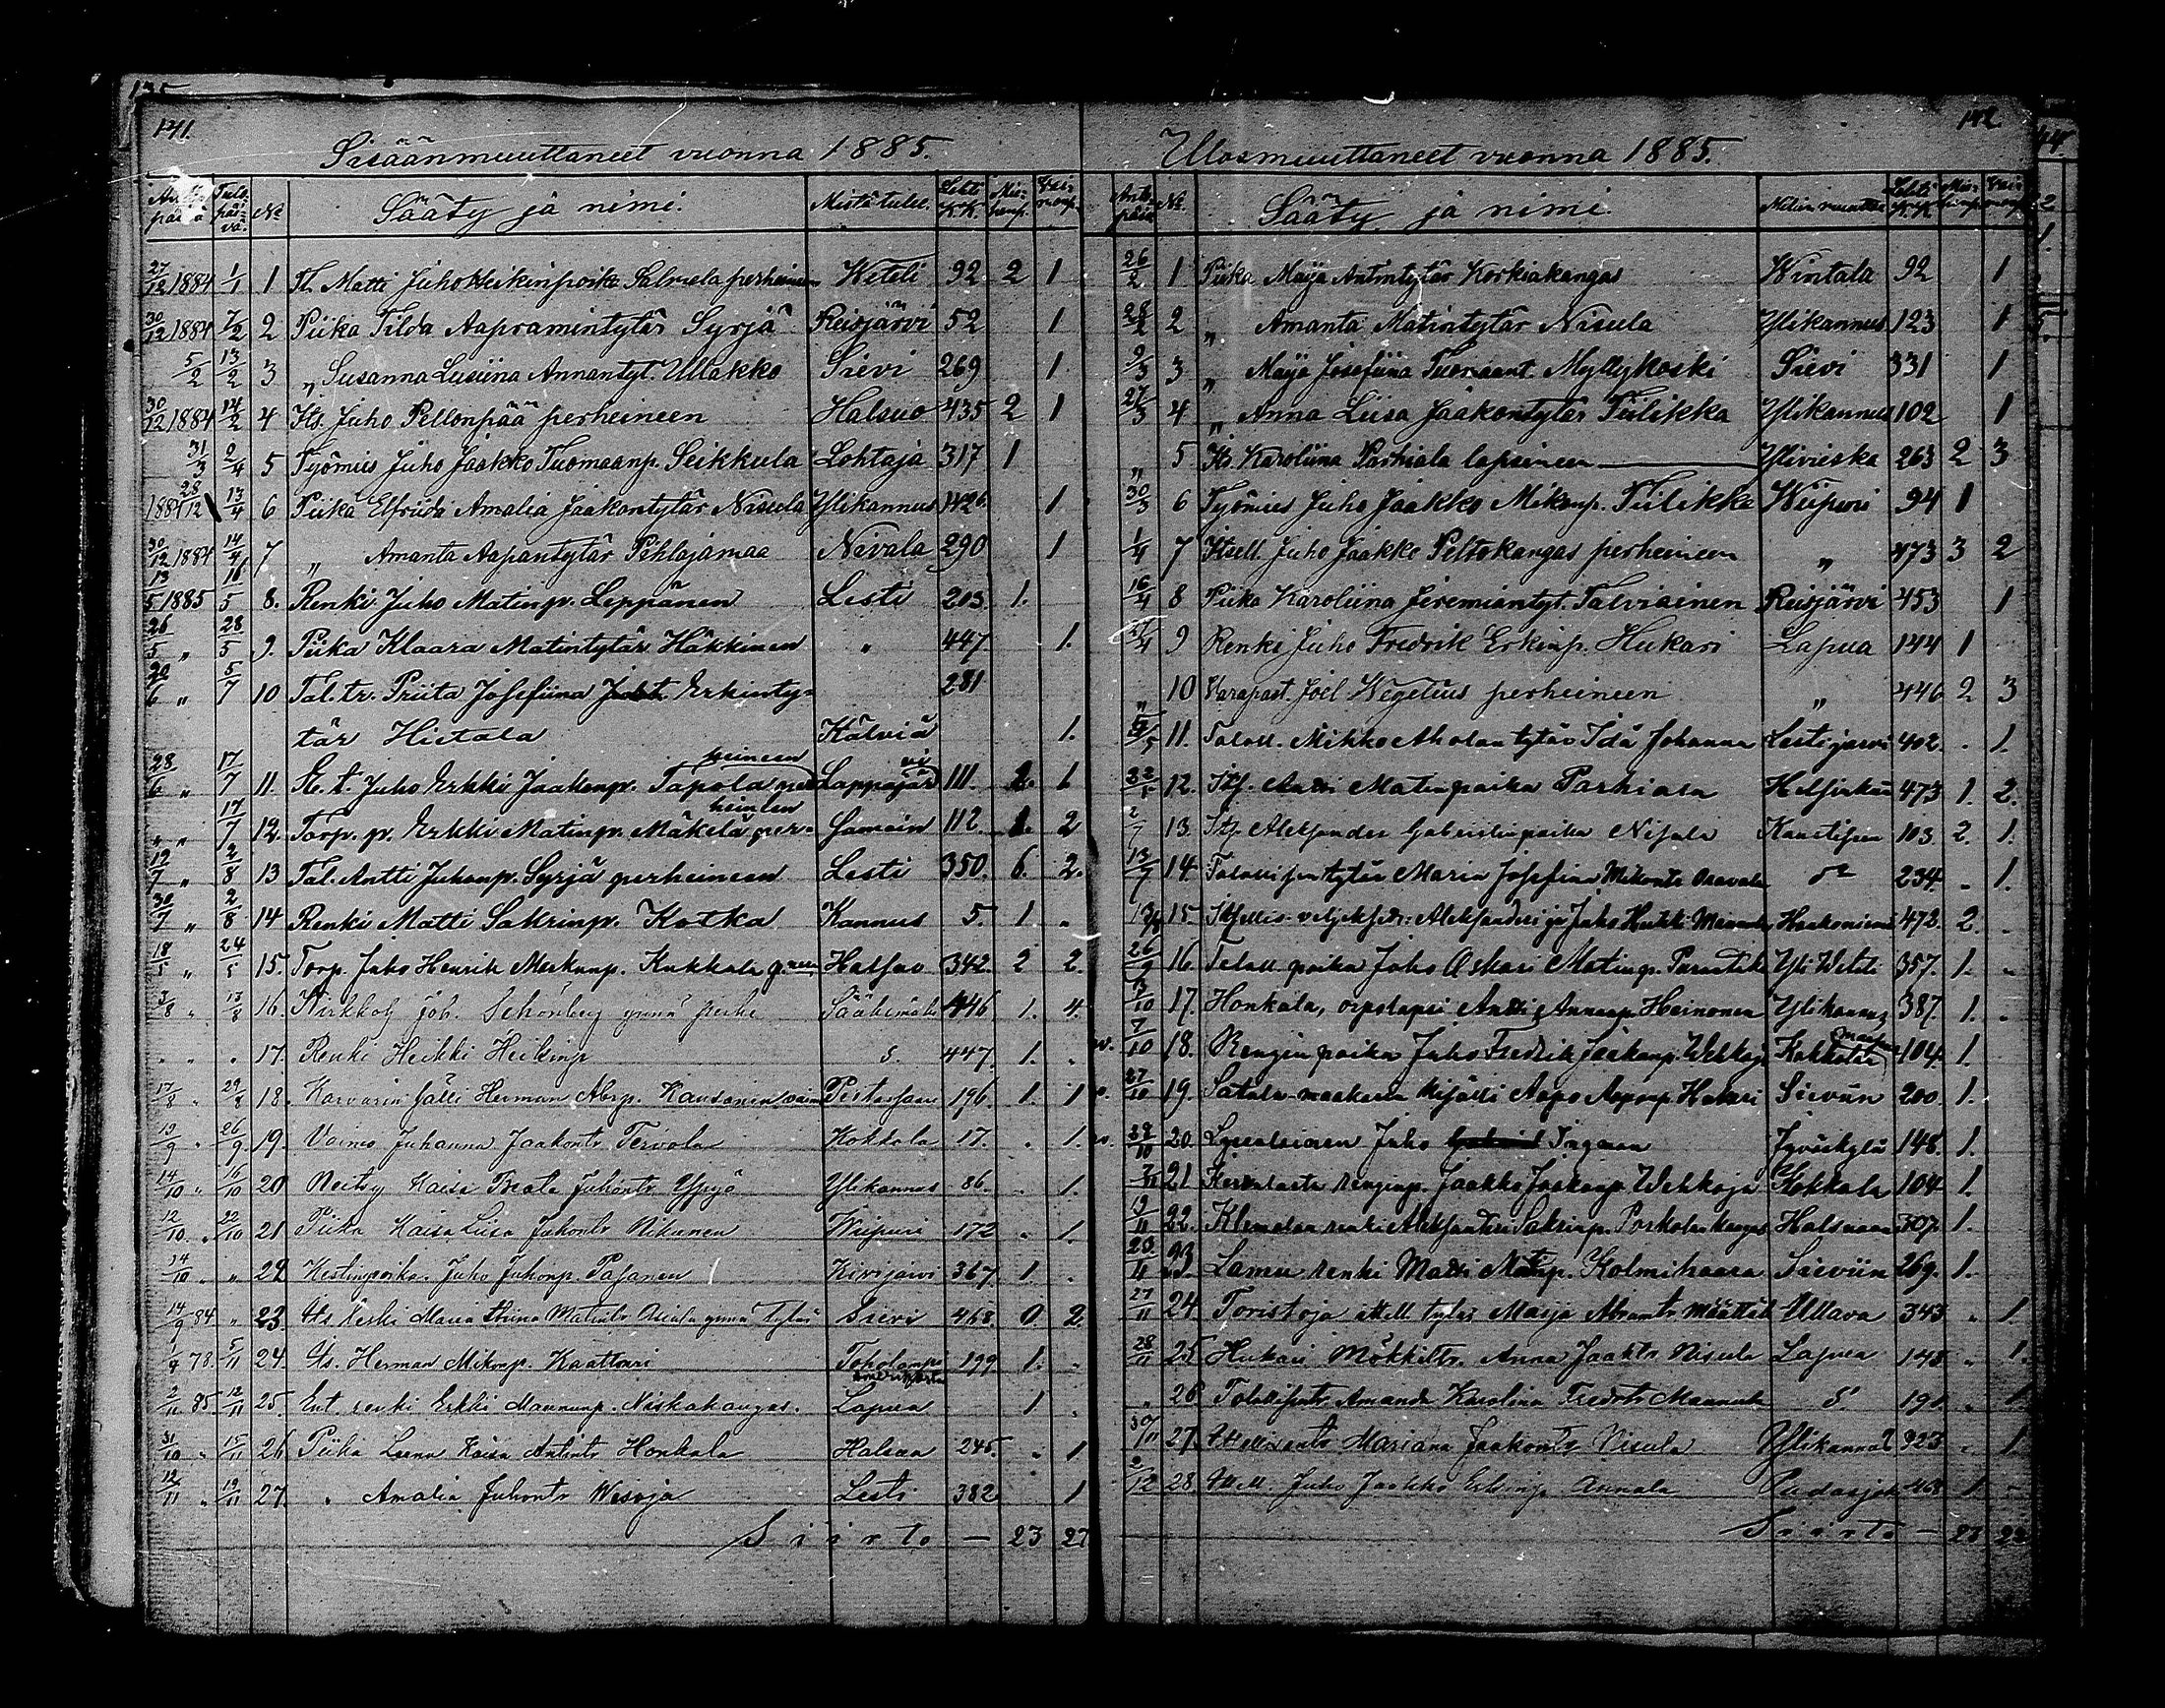 135
141.
Sisäänmuuttaneet vuonna 1885.
Tulo päivä. № Sääty ja nimi. Mistä tulee. Lehti K.K. Miehenp. Vaimonp.
27/12 1884 1/1 1 Tl. Matti Juho Heikinpoika Salmela perheineen Weteli 92 2 1
30/12 1884 7/2 2 Piika Tilda Aapramintytär Syrjä Reisjärvi 52 1
5/2 13/2 3 „ Susanna Lusiina Annantyt. Ullakko Sievi 269 1
30/12 1884 14/2 4 Its. Juho Pellonpää perheineen Halsuo 435 2 1
31/3 2/4 5 Työmies Juho Jaakko Tuomaanp. Seikkula Lohtaja 317 1
1884 28/12 13/4 6 Piika Elfriida Amalia Jaakontytär Nisula Ylikannus 426 1
30/12 1884 14/4 7 „ Amanta Aapantytär Pihlajamaa Nivala 290 1
13/5 1885 16/5 8. Renki Juho Matinp. Leppänen Lesti 203. 1.
26/5 „ 28/5 9. Piika Klaara Matintytär Häkkinen „ 447. 1.
20/6 „ 5/7 10 Tal. tr. Priita Josefiina Erkinty- 281
tär Hietala Kälviä 1.
28/6 „ 17/7 11. Juho Erkki Jaakonp. Tapola perheineen Lappajärvi 111. 2. 1
„ „ 17/7 12. Torp. p. Erkki Matinp. Mäkelä perheinen Samoin 112. 1. 2
12/7 „ 2/8 13 Tal. Antti Juhonp. Syrjä perheineen Lesti 350. 6. 2.
30/7 „ 2/8 14 Renki Matti Sakrinp. Kotka Kannus 5. 1. „
18/5 „ 24/5 15. Torp. Juho Henrik Markunp. Kukkola Halsuo 342. 2 2.
3/8 „ 13/8 16. Kirkkoh joh. Schönberg ynnä perhe Sääksmäki 446 1. 4.
„ „ „ 17. Renki Heikki Heikinp 447. 1. „
17/8 „ 29/8 18. Karvarin sälli Herman Abrp. Kausonen Pietarsaari 196. 1. 1
13/9 „ 26/9 19. Vaimo Juhanna Jaakontr Tervola Kokkola 17. „ 1.
14/10 „ 16/10 20 Neitsy Kaisa Beata Juhontr Yppyä Ylikannus 86. „ 1.
12/10 „ 22/10 21 Piika Kaisa Liisa Juhontr Nikunen Wiipuri 172 „ 1.
14/10 „ „ 22 Kestinpoika Juho Juhonp. Pasanen Kivijärvi 367. 1. „
14/9 84 „ 23. Its. leski Maria Stiina Matintr Nisula ynnä tytär Sievi 468. 0. 2.
1/4 78. 5/11 24. Its. Herman Mikonp. Kaattari Toholampi 199 1. „
2/11 85. 12/11 25. Ent. renki Erkki Mannunp. Niskakangas. Lapua 1 „
31/10 „ 15/11 26 Piika Leena Kaisa Antintr Honkala Halsua 245. „ 1
12/11 „ 19/11 27. „ Amalia Juhontr Wesoja Lesti 382. 1
Siirto — 23 27
142
Ulosmuuttaneet vuonna 1885.
Anto päivä № Sääty ja nimi. Mihin muuttaa Lehti K.K.
26/2 1 Piika Maija Antintytär Korkiakangas Wintala 92 1
28/2 2 „ Amanta Matintytär Nisula Ylikannus 123 1
9/3 3 „ Maija Josefiina Tuomaant. Myllykoski Sievi 331 1
27/3 4 „ Anna Liisa Jaakontytär Tiilikka Ylikannus 102 1
„ 5 Its. Karoliina Parhiala lapsineen Ylivieska 263 2 3
30/3 6 Työmies Juho Jaakko Mikonp. Tiilikka Wiipuri 94 1
1/4 7 Itsell. Juho Jaakko Peltokangas perheineen „ 473 3 2
16/4 8 Piika Karoliina Jeremiantyt. Talviainen Reisjärvi 453 1
9 Renki Juho Fredrik Erkinp. Hukari Lapua 144 1
„ 10 Varapast. Joel Wegelius perheineen „ 446 2 3
11. Taloll. Mikko Aholan tytär Ida Johanna Lestijärvi 402. „ 1.
12. Itsl. Antti Matinpoika Parhiala Helsinkiin 473 1. 2.
2/7 13. Itsl Aleksander Gabrielinpoika Nisula Kaustisen 103. 2. 1.
13/7 14. Talollisen tytär Maria Josefina Mikontr Osavala do 234. „ 1.
15. Itsellis. veljekset Aleksanderi ja Juho Heikki 472. 2. „
26/9 16. Taloll poika Juho Oskari Matinp. Yli Weteli 357. 1. „
13/10 17. Honkala, orpolapsi Antti Annanp. Heinonen Ylikannus 387. 1. „
7/10 18. Rengin poika Juho Fredrik Jaakonp. Wehkoja Kokkola 104. 1.
27/10 19. Satula-maakarin kisälli Aapo Aaponp. Hakari Sieviin 200. 1.
28/10 20. Lyseolainen Juho Ingman Jyväskylä 148. 1.
7/11 21 renginp. Jaakko Jaakonp. Wehkoja Kokkola 104. 1.
9/11 22. Klemolan renki Aleksanderi Sakrinp. Porkolankangas Halsuaan 307. 1.
20/11 23 Lamu renki Matti Matinp. Kolmihaara Sieviin 269. 1.
27/11 24. Toristoja itsell. tytär Maija Abramtr Määttälä Ullava 343 „ 1.
28/11 25 Hukari Mökkiltr. Anna Jaaktr Nisula Lapua 148 „ 1.
„ 26 Talollisentr Amanda Karolina Fredrtr Mannula 191 „ 1
30/11 27. Mariana Jaakontr Nisula Ylikannus 323 „ 1
2/12 28. Itsell. Juho Jaakko Erkinp Annala Padasjoki 468 1 „
Siirto — 23 22